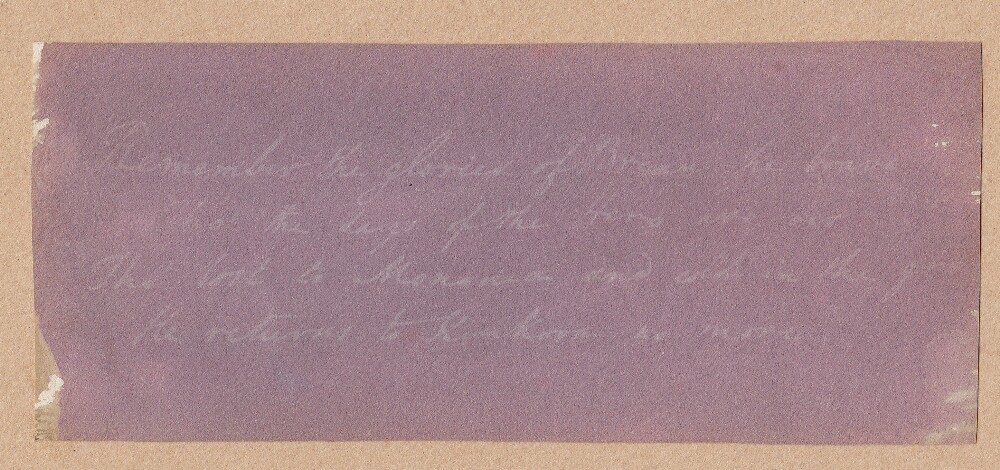 Remember the glories of Brien the brave
Tho' the days of the Hero are o'er
Tho' lost to Monomia and cold in the grave
He returns to Kinkora no more.